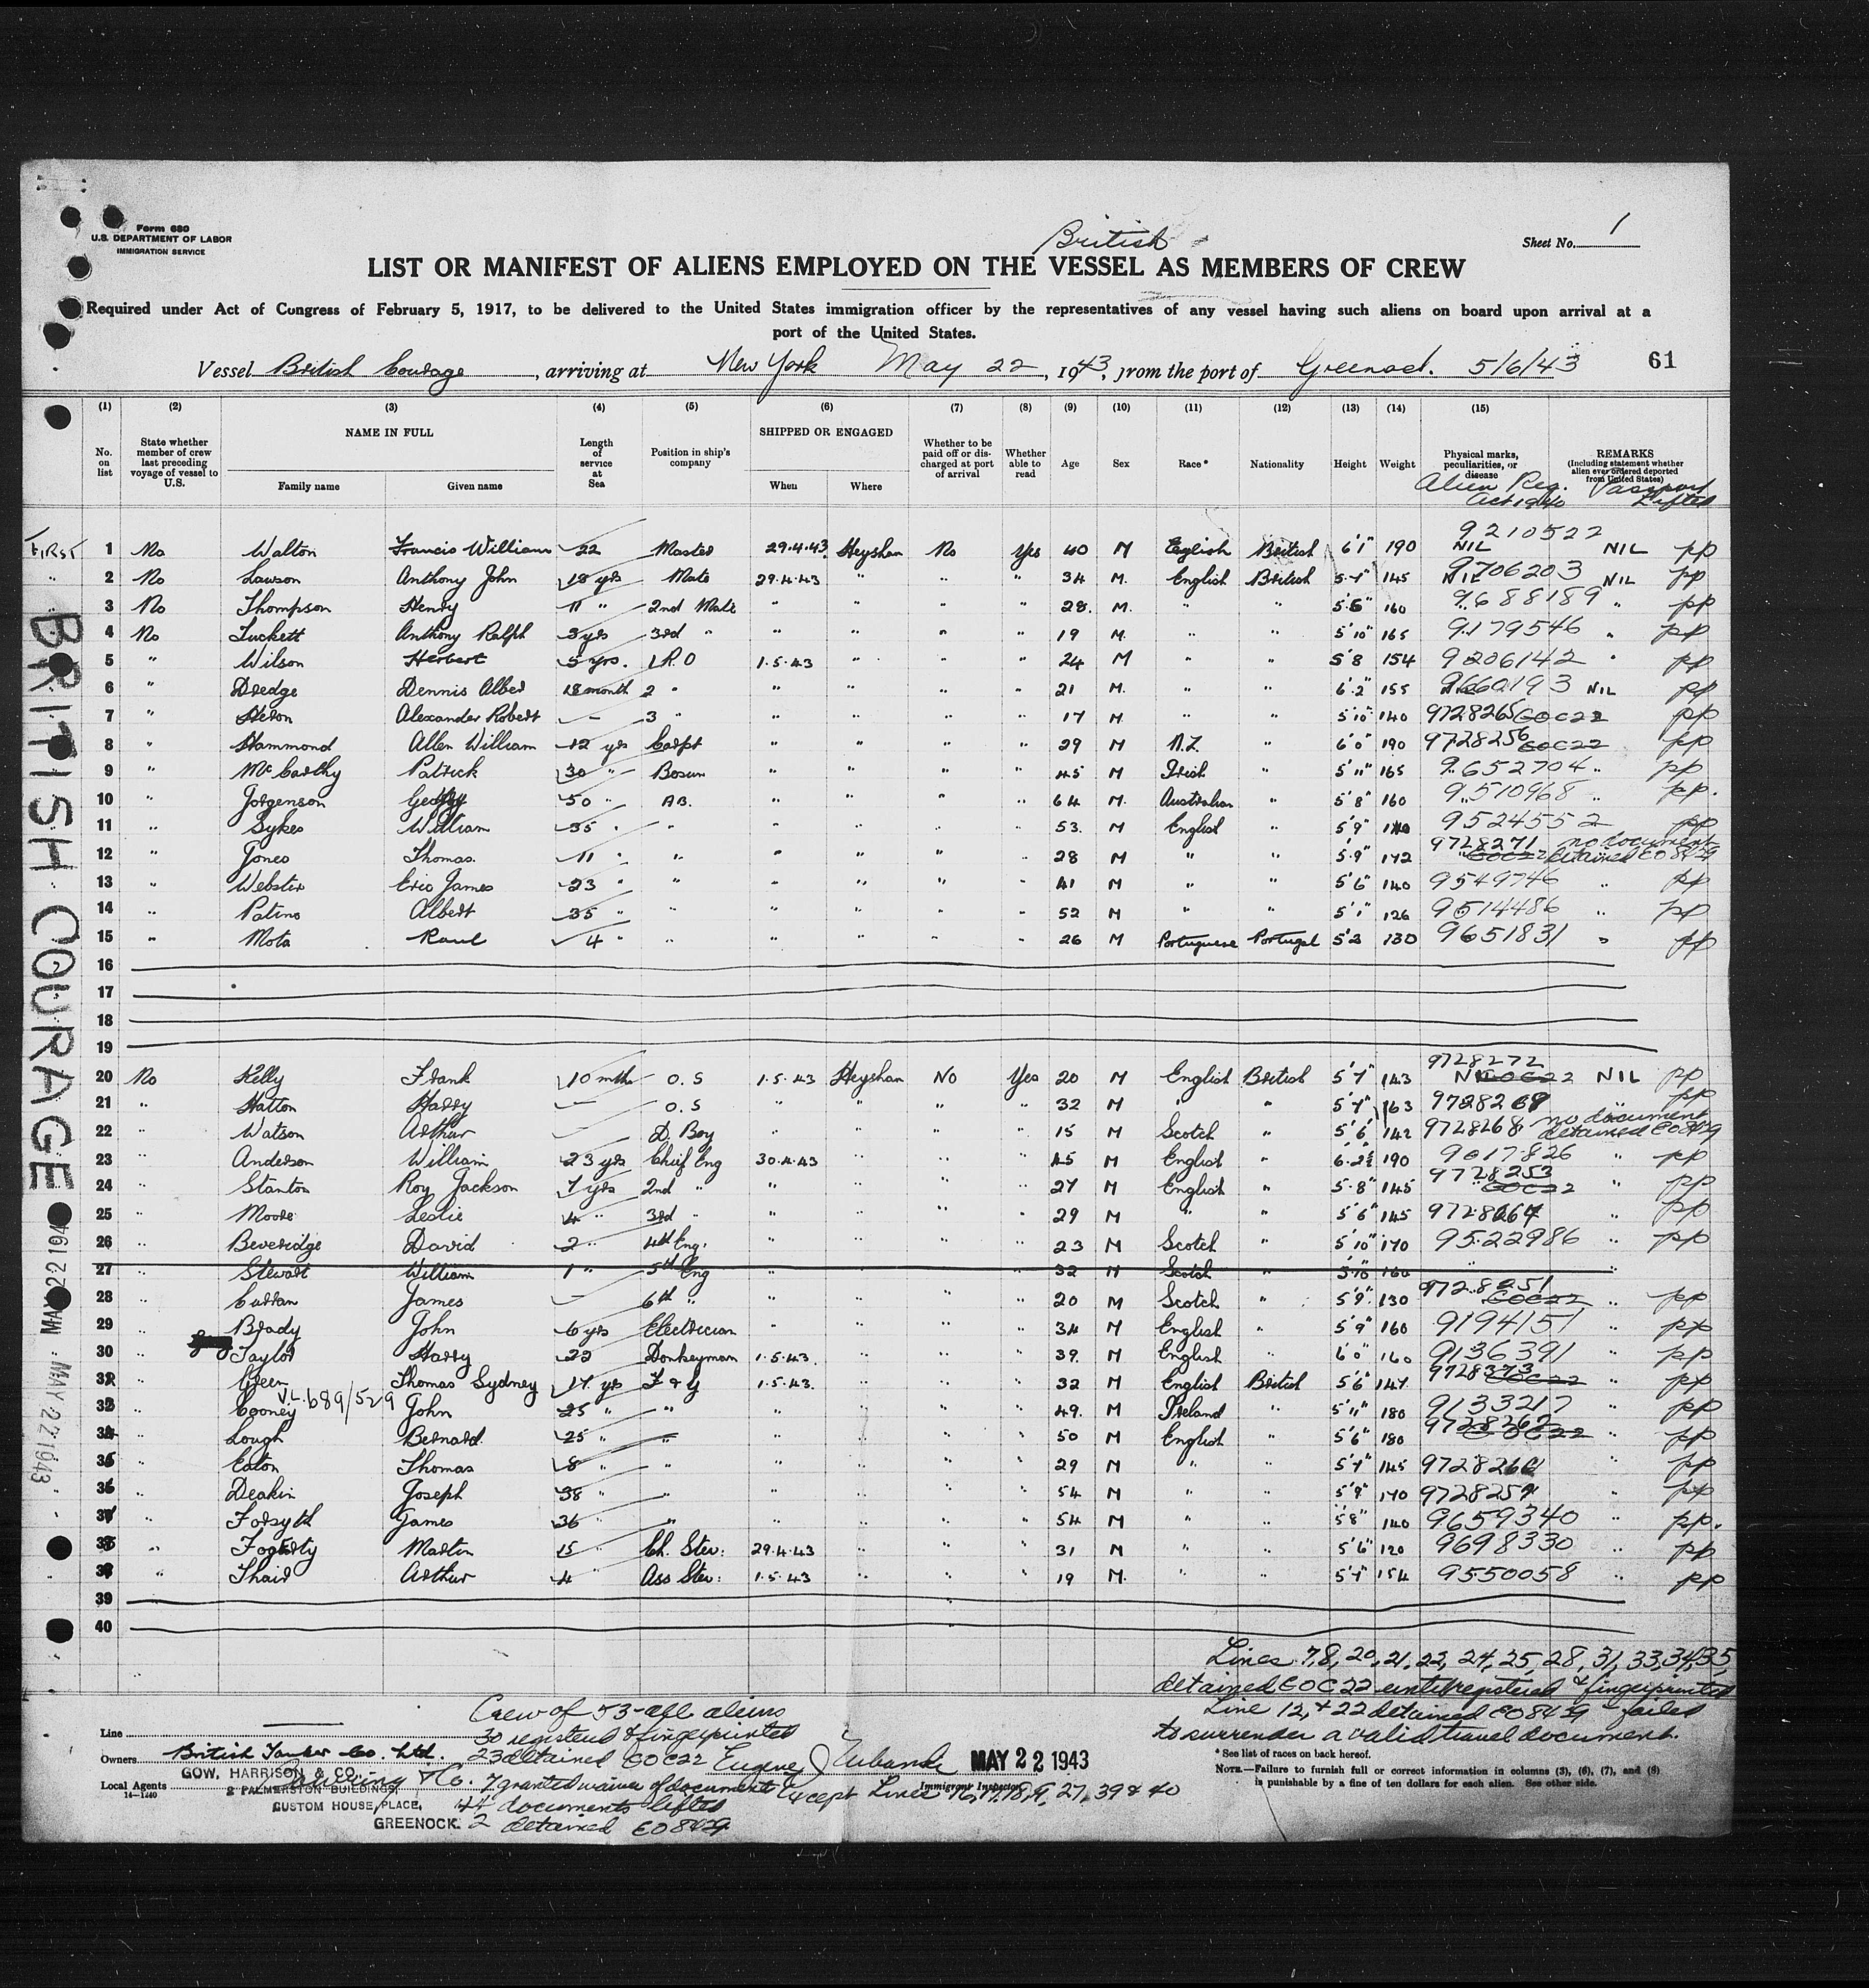 Form 680
U.S. DEPARTMENT OF LABOR
IMMIGRATION SERVICE
British
Sheet No. 1
LIST OR MANIFEST OF ALIENS EMPLOYED ON THE VESSEL AS MEMBERS OF CREW
Required under Act of Congress of February 5, 1917, to be delivered to the United States immigration officer by the representatives of any vessel having such aliens on board upon arrival at a
port of the United States.
Vessel British Courage, arriving at New York May 22, 1943, from the port of Greenock. 5/6/43
61
(1) (2) (3) (4) (5) (6) (7) (8) (9) (10) (11) (12) (13) (14) (15)
No. on list
State whether member of crew last preceding voyage of vessel to U.S.
NAME IN FULL
Family name Given name
Length of service at Sea
Position in ship's company
SHIPPED OR ENGAGED
When Where
Whether to be paid off or discharged at port of arrival
Whether able to read
Age Sex Race* Nationality Height Weight
Physical marks, peculiarities, or disease
Alien Reg. Act 1940
REMARKS
(Including statement whether alien ever ordered deported from United States)
Passport Lifted
FIRST 1 No Walton Francis William 22 Master 29.4.43 Heysham No Yes 40 M English British 6'1" 190 9210522 NIL NIL pp
" 2 No Lawson Anthony John 18 yrs Mate 29.4.43 " " " 34 M. English British 5.7" 145 9706203 NIL NIL pp
3 No Thompson Henry 11 " 2nd Mate " " " " 28. M. " " 5'6" 160 9688189 " pp
4 No Luckett Anthony Ralph 3 yrs 3rd " " " " " 19 M. " " 5'10" 165 9179546 " pp
5 " Wilson Herbert 5 yrs. 1 R.O 1.5.43 " " " 24 M " " 5'8 154 9206142 " pp
6 " Dredge Dennis Albert 18 month 2 " " " " " 21 M. " " 6'2" 155 9660193 NIL pp
7 " Heron Alexander Robert - 3 " " " " " 17 M " " 5'10" 140 9728265 EOC22 pp
8 " Hammond Allen William 12 yrs Carpt " " " " 29 M N.Z. " 6'0" 190 9728256 EOC22 pp
9 " McCarthy Patrick 30 " Bosun " " " " 45 M Irish " 5'11" 165 9652704 " pp
10 " Jorgenson 50 " AB. " " " " 64 M. Australian " 5'8" 160 9510968 " pp.
11 " Sykes William 35 " " " " " " 53. M English " 5'9" 9524552 pp
12 " Jones Thomas. 11 " " " " " " 28 M " " 5.9" 172 9728271 EOC22 no document detained EO 8429
13 " Webster Eric James 23 " " " " " " 41 M " " 5'6" 140 9549746 " pp
14 " Patino Albert 35 " " " " " " 52 M " " 5'1" 126 9514486 " pp
15 " Mota Raul 4 " " " " " " 26 M Portuguese Portugal 5'2 130 9651831 " pp
16
17
18
19
20 No Kelly Frank 10 mths O.S 1.5.43 Heysham No Yes 20 M English British 5'7" 143 9728272 NIL EOC22 NIL pp
21 " Hatton Harry - O.S " " " " 32 M " " 5'7" 163 9728269 " pp
22 " Watson Arthur - D. Boy " " " " 15 M Scotch " 5'6 142 9728268 no document detained EO 8429
23 " Anderson William 23 yrs Chief Eng 30.4.43 " " " 45 M English " 6.2½ 190 9017826 " pp
24 " Stanton Roy Jackson 7 yrs 2nd " " " " " 27 M English " 5.8" 145 9728253 EOC22 " pp
25 " Moore Leslie 4 " 3rd " " " " 29 M " " 5'6" 145 9728267 " pp
26 " Beveridge David 2 " 4th Eng. " " " " 23 M Scotch " 5'10" 170 9522986 " pp
27 " Stewart William 1 " 5th Eng " " " " 32 M Scotch " 5'10 160 "
28 " Curran James - 6th " " " " " 20 M Scotch " 5'9" 130 9728251 EOC22 " pp
29 " Brady John 6 yrs Electrician " " " " 34 M English " 5'9" 160 9194151 " pp
30 " Taylor Harry 22 Donkeyman 1.5.43. " " " 39. M English " 6'0" 160 9136391 " pp
31 " Green Thomas Sydney 17 yrs F & G 1.5.43. " " " 32 M English British 5'6" 147 9728373 EOC22 " pp
V.L. 689/529
32 " Cooney John 25 " " " " " " 49. M Ireland " 5'11" 180 9133217 " pp
33 " Lough Bernard. 25 " " " " " " 50 M English " 5'6" 180 9728262 EOC22 " pp
34 " Eaton Thomas 8 " " " " " " 29 M " " 5'7" 145 " pp
35 " Deakin Joseph 38 " " " " " " 54 M " " 5'9" 170 " pp
36 " Forsyth James 36 " " " " " " 54 M " " 5'8" 140 9659340 " pp.
37 " Fogerty Martin 15 " Ch. Stew: 29.4.43 " " " 31 M " " 5'6" 120 9698330 " pp
38 " Thaid Arthur 4 " Ass Stew: 1.5.43 " " " 19 M. " " 5'7" 154 9550058 " pp
39
40
BRITISH COURAGE
MAY 22 194
MAY 22 1943
Lines 7,8,20,21,22,24,25,28,31,33,34,35,
detained EOC22 until registered & fingerprinted
Line 12, + 22 detained EO 8429 - failed
to surrender a valid travel document.
Crew of 53-all aliens
30 registered & fingerprinted
23 detained EOC22
7 granted waiver of documents
44 documents lifted
2 detained EO 8429
Eugene J Eubank MAY 22 1943
Immigrant Inspector
Except Lines 16,17,18,19, 27, 39 & 40
Line
Owners British Tanker Co. Ltd.
GOW, HARRISON & CO.,
Local Agents
2 PALMERSTON BUILDINGS,
CUSTOM HOUSE PLACE,
GREENOCK.
14-1240
* See list of races on back hereof.
NOTE.—Failure to furnish full or correct information in columns (3), (6), (7), and (9)
is punishable by a fine of ten dollars for each alien. See other side.